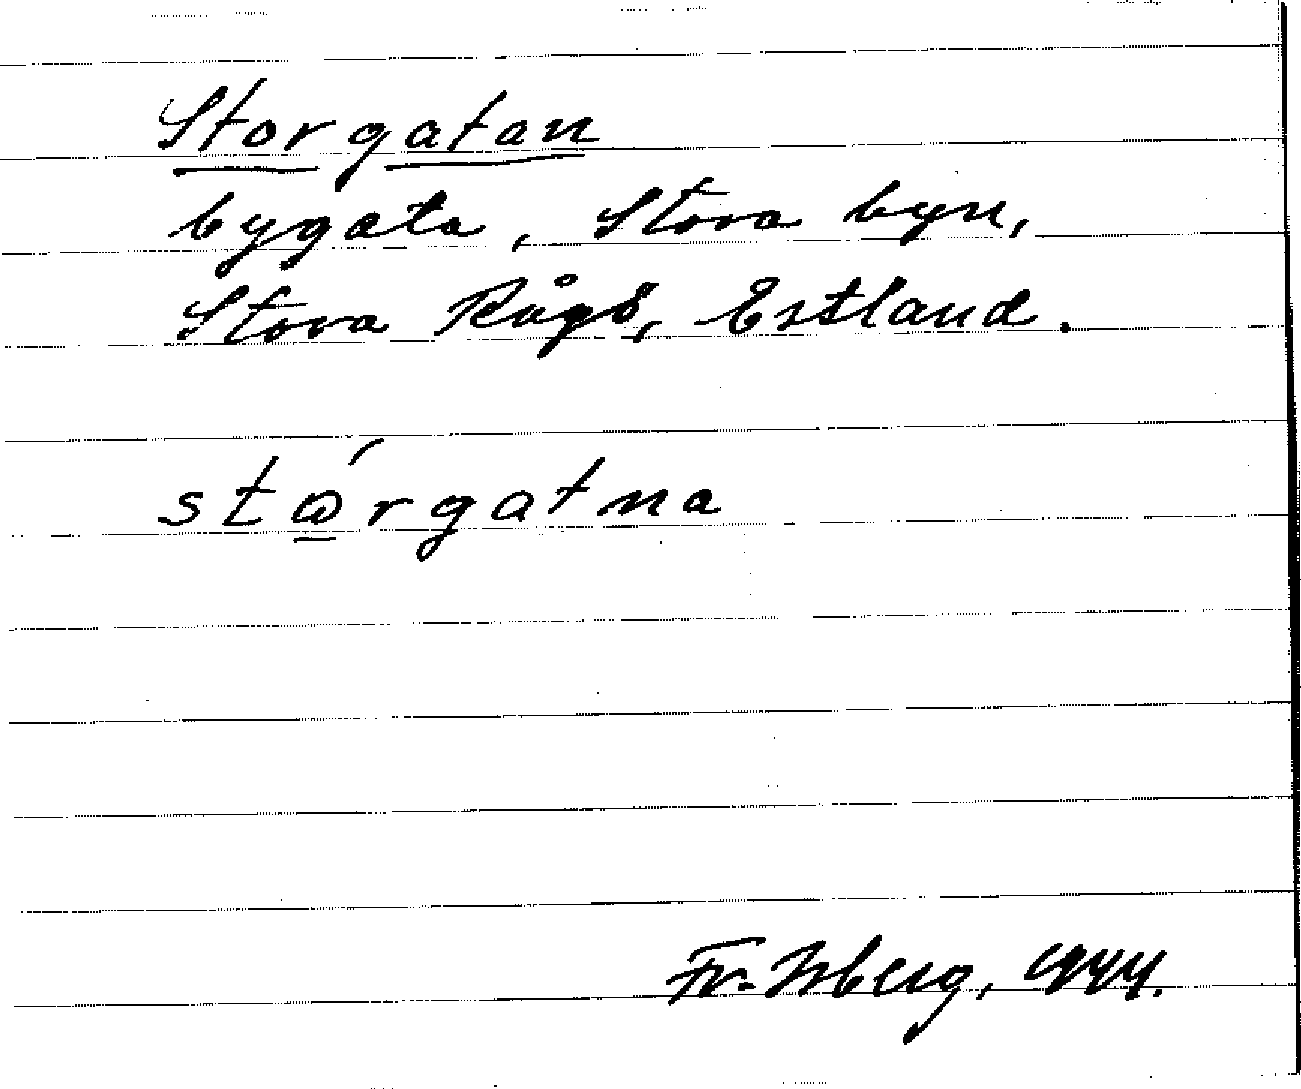 Storgatan
bygata, Stora byn,
Stora Rågö, Estland.
stώ̲rgatna
Fr. 1944.